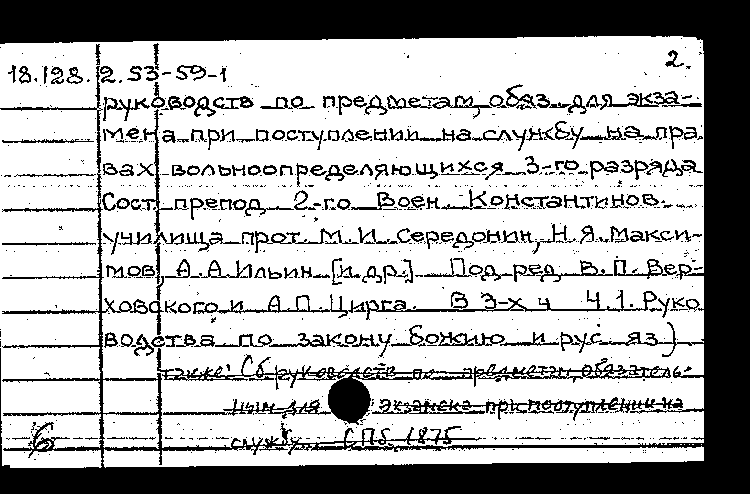 18.128.2.53-59-1
2.
руководств по предметам, обяз. для экза-
мена при поступлении на службу на пра
вах вольноопределяющихся 3-го разряда
Сост. препод. 2-го Воен. Константинов.
училища прот. М.И. Середонин, Н.Я. Макси-
мов, А.А. Ильин [и др.] Под ред. В.П. Вер-
ховского и А.П. Цирга. В 3-х ч Ч.1. Руко
водства по закону божию и рус яз)
также: Сб руководств по предметам, обязатель-
ным для экзамена при поступлении на
службу... СПб. 1875
6